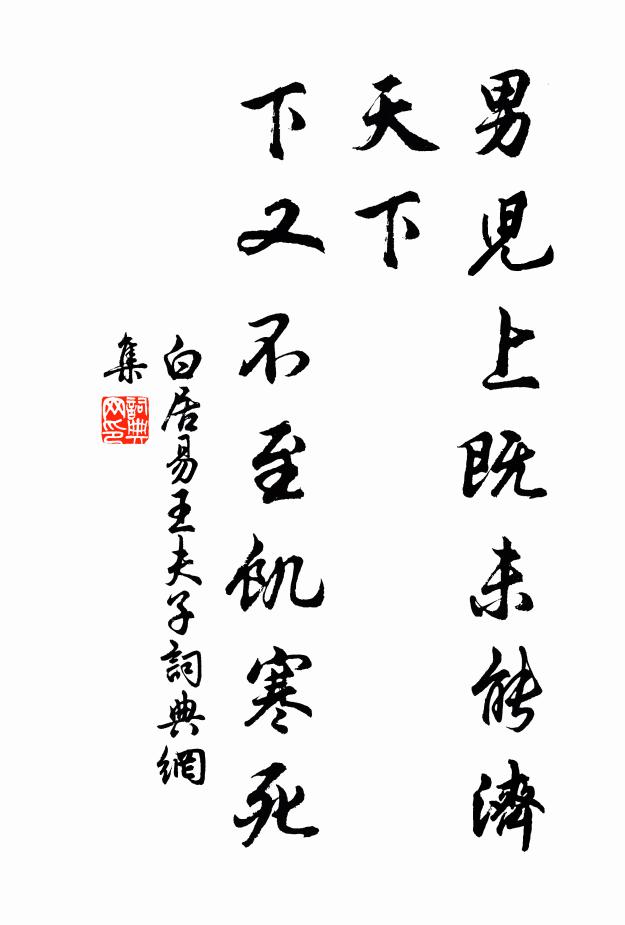 男兒上既未能濟
天下
下又不至飢寒死
白居易王夫子詞典網
集
詞典
网印